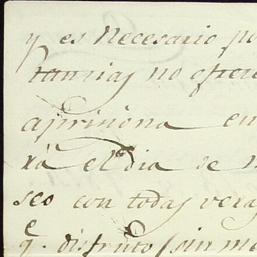 y es necesario po
tancias no ofrere
aprinona en
rà el dia de
seo con todas vera
q.e disfruto sin me